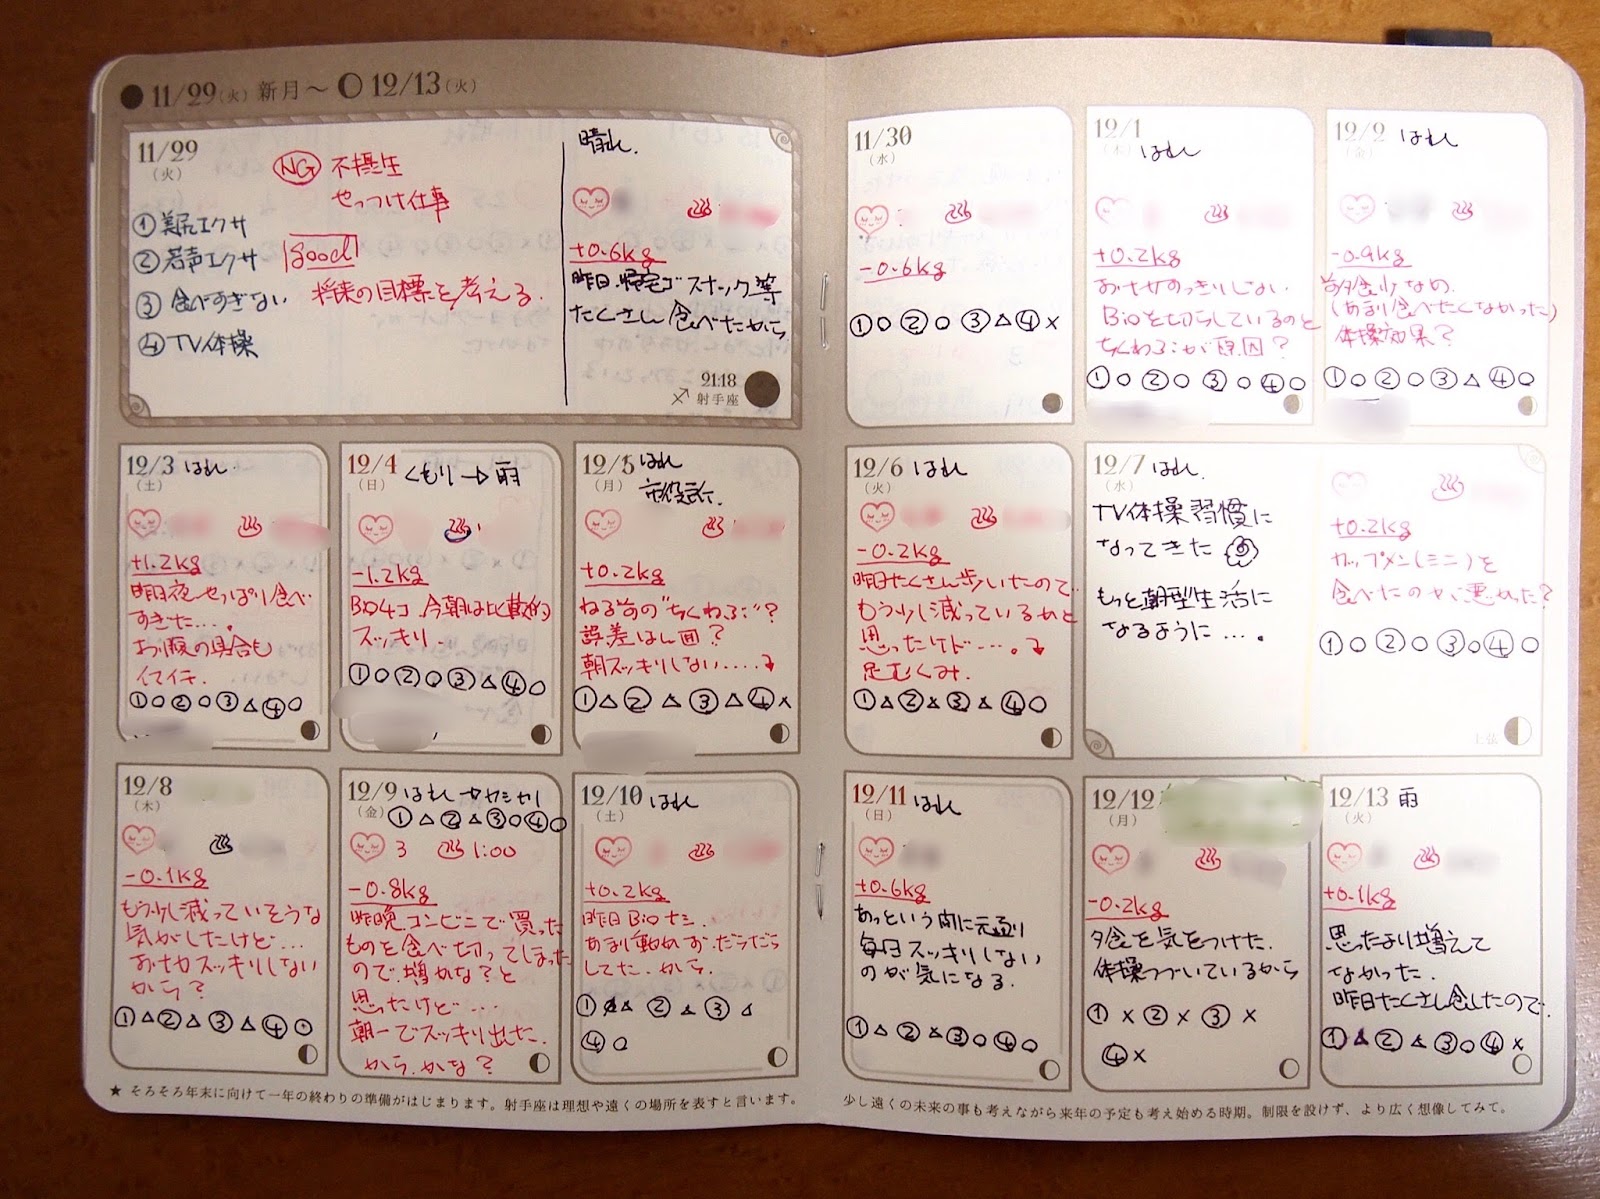 11/29(火) 新月〜 12/13(火)
11/29
(火)
NG 不摂生
やっつけ仕事
①美尻エクサ
②若声エクサ
③食べすぎない
④TV体操
Good
将来の目標を考える.
晴れ.
+0.6kg
昨日.帰宅ゴスナック等
たくさん食べたから
21:18
射手座
11/30
(水)
-0.6kg
①○②○③△④×
12/1
(木)
はれ
+0.2kg
おナカすっきりしない
Bioを切らしているのと
ちくわぶが原因?
①○②○③○④○
12/2
(金)
はれ
-0.9kg
夕食少なめ.
(あまり食べたくなかった)
体操効果?
①○②○③△④○
12/3
(土)
はれ.
+1.2kg
昨日夜やっぱり食べ
すぎた....
お腹の具合も
イマイチ.
①○②○③△④○
12/4
(日)
くもり→雨
-1.2kg
Bio4コ.今朝は比較的
スッキリ.
①○②○③△④○
12/5
(月)
はれ
市役所.
+0.2kg
ねる前の"ちくわぶ"?
誤差はん囲?
朝スッキリしない....
①△②△③△④×
12/6
(火)
はれ
-0.2kg
昨日たくさん歩いたので
もう少し減っているかと
思ったケド....
足むくみ.
①△②△③△④○
12/7
(水)
はれ.
TV体操習慣に
なってきた
もっと朝型生活に
なるように....
+0.2kg
カップメン(ミニ)を
食べたのが悪かった?
①○②○③○④○
上弦
12/8
(木)
-0.1kg
もう少し減っていそうな
気がしたけど...
おナカスッキリしない
から?
①△②△③△④○
12/9
(金)
はれ
①△②△③○④○
3 1:00
-0.8kg
昨晩コンビニで買った
ものを食べ切ってしまった
ので.増かな?と
思ったけど...
朝一でスッキリ出た.
から.かな?
12/10
(土)
はれ
+0.2kg
昨日Bioナシ.
あまり動かず.だらだら
してた.から.
①△②△③△
④○
12/11
(日)
はれ
+0.6kg
あっという間に元通り
毎日スッキリしない
のが気になる.
①△②△③○④○
12/12
(月)
-0.2kg
夕食を気をつけた.
体操つづいているから
①×②×③×
④×
12/13
(火)
雨
+0.1kg
思ったより増えて
なかった.
昨日たくさん食したので
①△②△③○④×
★ そろそろ年末に向けて一年の終わりの準備がはじまります。射手座は理想や遠くの場所を表すと言います。
少し遠くの未来の事も考えながら来年の予定も考え始める時期。制限を設けず、より広く想像してみて。